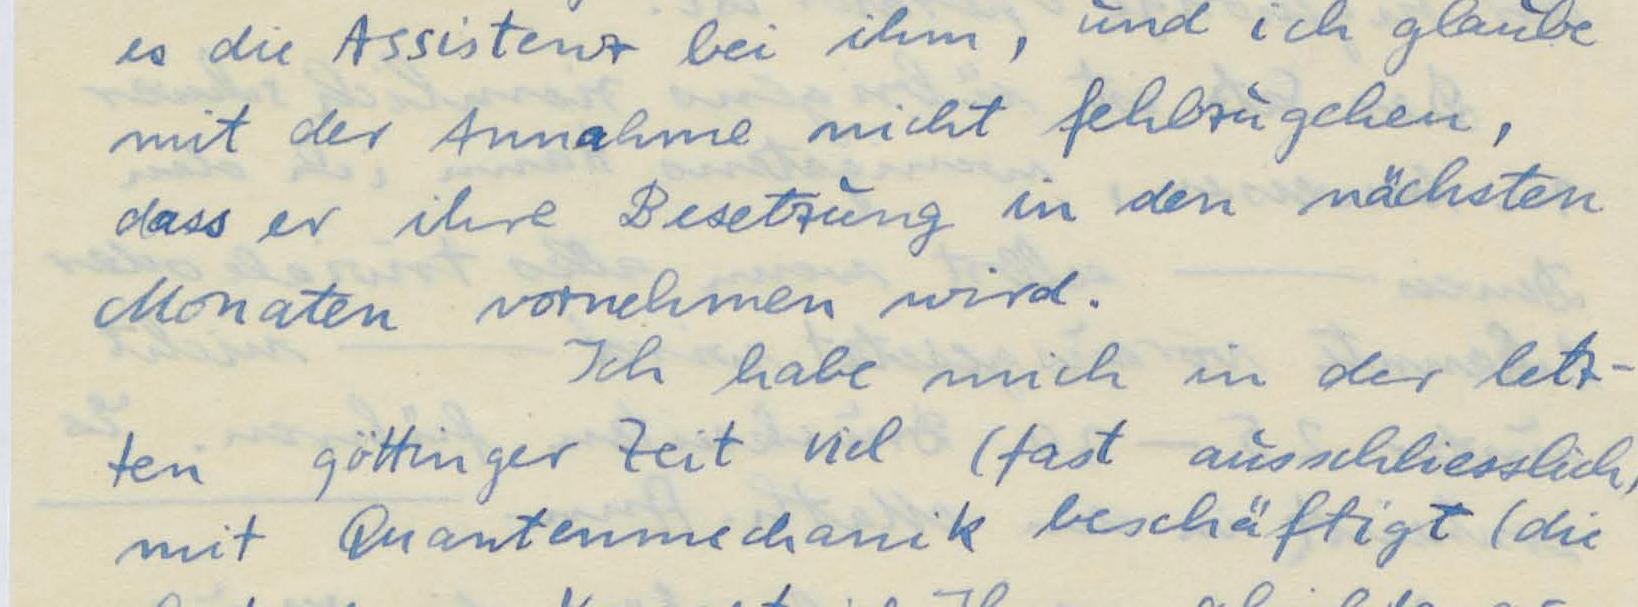 es die Assistenz bei ihm, und ich glaube
mit der Annahme nicht fehlzugehen,
dass er ihre Besetzung in den nächsten
Monaten vornehmen wird.
Ich habe mich in der letz-
ten göttinger Zeit viel (fast ausschliesslich)
mit Quantenmechanik beschäftigt (die